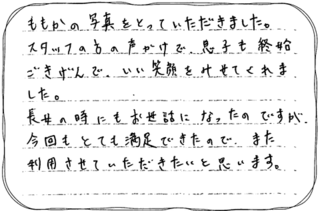 ももかの写真をとっていただきました。
スタッフの方の声がけで、息子も終始
ごきげんで、いい笑顔をみせてくれま
した。
長女の時にもお世話になったのですが、
今回もとても満足できたので、また
利用させていただきたいと思います。